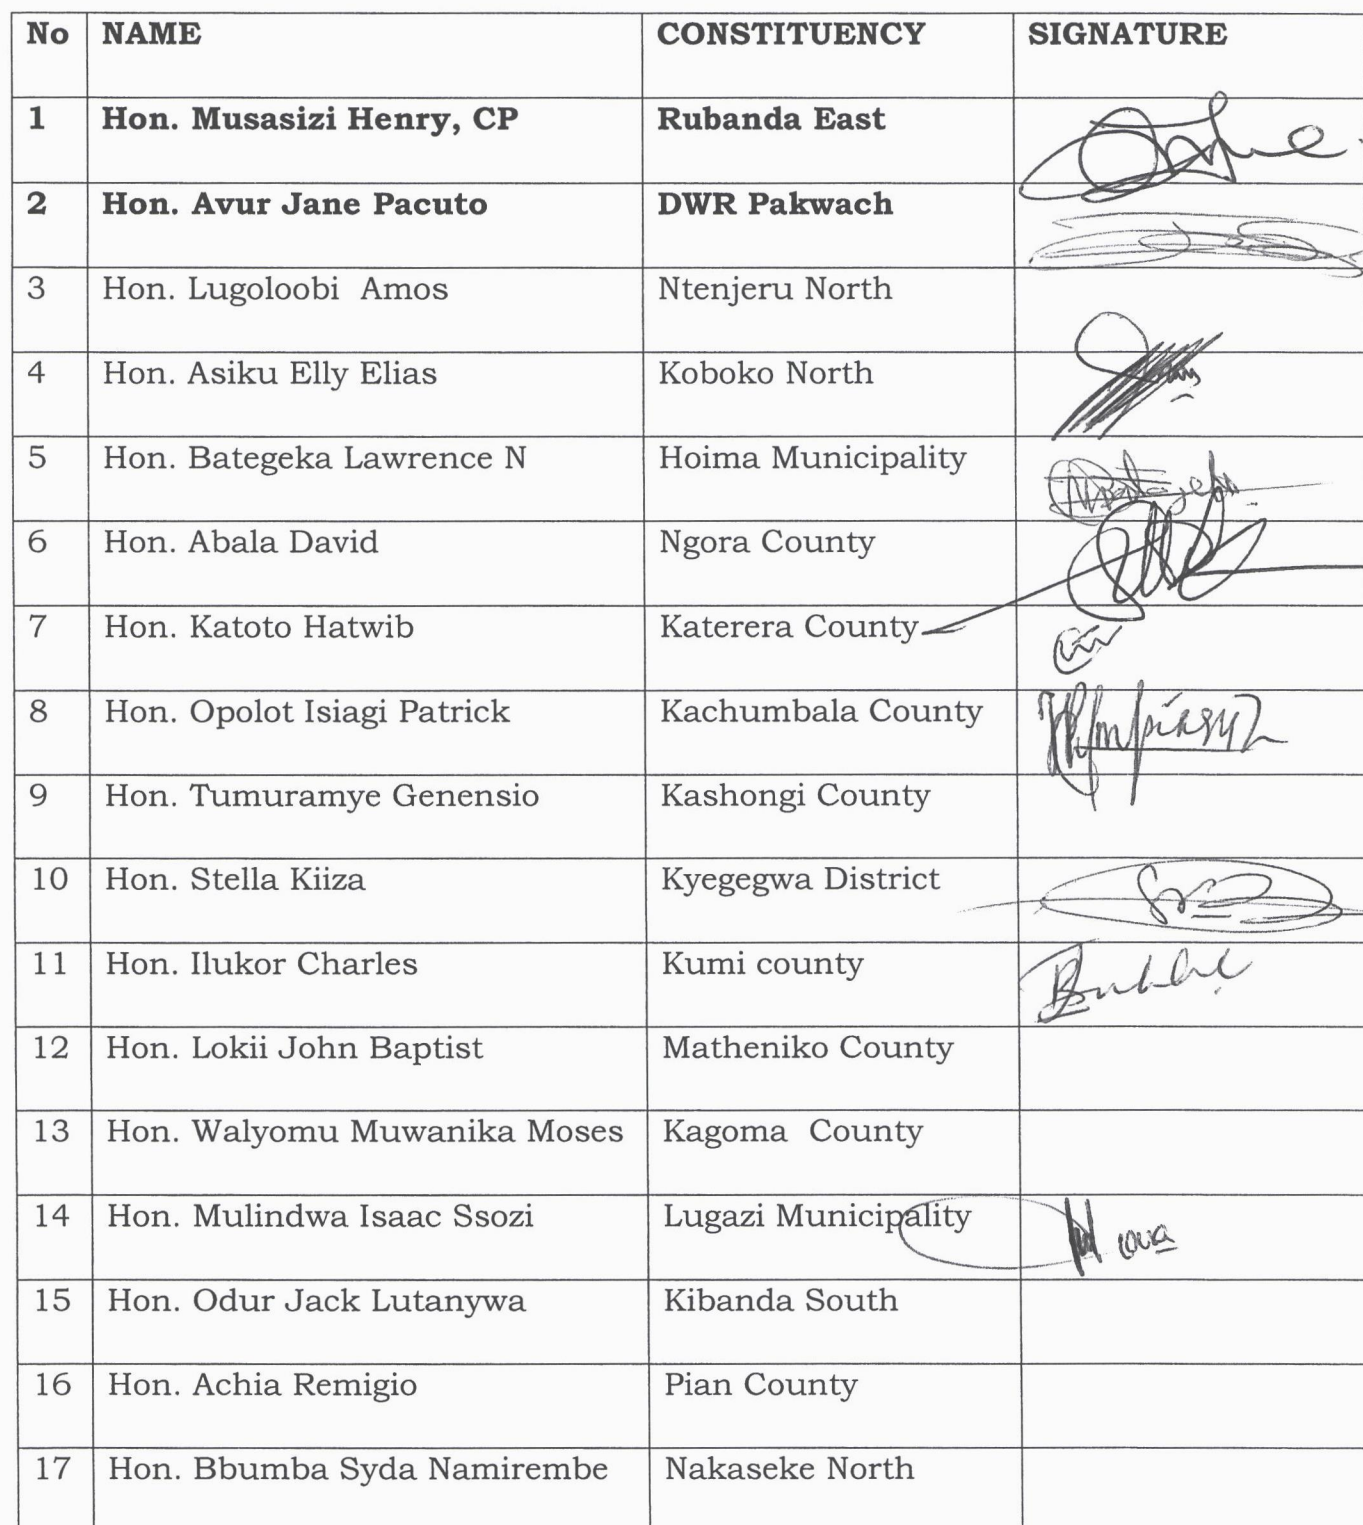 No NAME CONSTITUENCY SIGNATURE
1 Hon. Musasizi Henry, CP Rubanda East
2 Hon. Avur Jane Pacuto DWR Pakwach
3 Hon. Lugoloobi Amos Ntenjeru North
4 Hon. Asiku Elly Elias Koboko North
5 Hon. Bategeka Lawrence N Hoima Municipality
6 Hon. Abala David Ngora County
7 Hon. Katoto Hatwib Katerera County
8 Hon. Opolot Isiagi Patrick Kachumbala County
9 Hon. Tumuramye Genensio Kashongi County
10 Hon. Stella Kiiza Kyegegwa District
11 Hon. Ilukor Charles Kumi county
12 Hon. Lokii John Baptist Matheniko County
13 Hon. Walyomu Muwanika Moses Kagoma County
14 Hon. Mulindwa Isaac Ssozi Lugazi Municipality
15 Hon. Odur Jack Lutanywa Kibanda South
16 Hon. Achia Remigio Pian County
17 Hon. Bbumba Syda Namirembe Nakaseke North